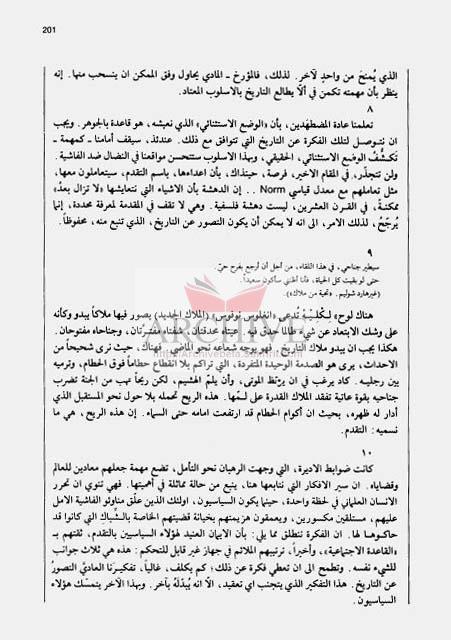 201
الذي يُمنحَ من واحدٍ لآخر. لذلك، فالمؤرخ ـ المادي يحاول وفق الممكن ان ينسحب منها. إنه
ينظر بأن مهمته تكمن في ألّا يطالع التاريخ بالاسلوب المعتاد.
٨
تعلمنا عادة المضطهَدين، بأن «الوضع الاستثنائي» الذي نعيشه، هو قاعدة بالجوهر. ويجب
ان نتوصل لتلك الفكرة عن التاريخ التي تتوافق مع ذلك. عندئذ، سيقف أمامنا ـ كمهمة ـ
تكشُّف الوضع الاستثنائي، الحقيقي، وبهذا الاسلوب ستتحسن مواقعنا في النضال ضد الفاشية.
ولن تتجذّر، في المقام الأخير، فرصة، حينذاك، بأن اعداءها، باسم التقدم، سيتعاملون معها،
مثل تعاملهم مع معدل قياسي Norm . . إن الدهشة بأن الاشياء التي نتعايشها «لا تزال بعدُ»
ممكنة، في القرن العشرين، ليست دهشة فلسفية. وهي لا تقف في المقدمة لمعرفة محددة، إنما
يُرجّحُ، لذلك الامر، الى انه لا يمكن أن يكون التصور عن التاريخ، الذي تنبع منه، محفوظاً.
٩
سيطير جناحي، في هذا اللقاء، من أجل أن أرجع بفرح حيّ.
حتى لو بقيت كل الحياة، فأنا أظنني سأكون سعيداً.
(غيرهارد شوليم. «تحية من ملاك»).
هناك لوح» لـكُـلـيّـة تُدعى «انغلوس نوفوس» (الملاك الجديد) يصور فيها ملاكاً يبدو وكأنه
على وشك الابتعاد عن شيء طالما حدق فيه. عيناه محدقتان، شفتاه مفترّتان، وجناحاه مفتوحان.
هكذا يجب ان يبدو ملاك التاريخ. فهو يوجه شعاعه نحو الماضي. فهناك، حيث نرى شحيحاً من
الاحداث، يرى هو الصدمة الوحيدة المتفردة، التي تراكم بلا انقطاع حطاماً فوق الحطام، وترميه
بين رجليه. كاد يرغب في ان يوقظ الموتى، وأن يلمّ الهشيم، لكن ريحاً تهب من الجنة تضرب
جناحيه بقوة عاتية تفقد الملاك القدرة على لـمّها. هذه الريح تحمله بلا حول نحو المستقبل الذي
أدار له ظهره، بحيث ان أكوام الحطام قد ارتفعت امامه حتى السماء. إن هذه الريح، هي ما
نسميه: التقدم.
ARCHIVE
http://Archivebeta.Sakhrit.com
١٠
كانت ضوابط الاديرة، التي وجهت الرهبان نحو التأمل، تضع مهمة جعلهم معادين للعالم
وقضاياه. ان سير الافكار التي نتابعها هنا، ينبع من حالة مماثلة في أهميتها. فهي تنوي ان تحرر
الانسان العلماني في لحظة واحدة، حينما يكون السياسيون، اولئك الذين علّق مناوئو الفاشية الامل
عليهم، مستلقين مكسورين، ويعمقون هزيمتهم بخيانة قضيتهم الخاصة بالشِّباكِ التي كانوا قد
حاكوهـا لهـا. ان الفكرة تنطلق مما يلي: بأن الايمان العنيد لهؤلاء السياسيين بالتقدم، ثقتهم بـ
«القاعدة الاجتماعية»، وأخيراً، ترتيبهم الملائم في جهاز غير قابل للتحكم: هذه هي ثلاث جوانب
للشيء نفسه. وتطمح الى ان تعطي فكرة عن ذلك؛ كم يكلف، غالياً، تفكيـرنـا العاديّ التصورُ
عن التاريخ. هذا التفكير الذي يتجنب اي تعقيد، الّا انه يُبدّلَهُ بآخر. وبهذا الآخر يتمسّك هؤلاء
السياسيون.